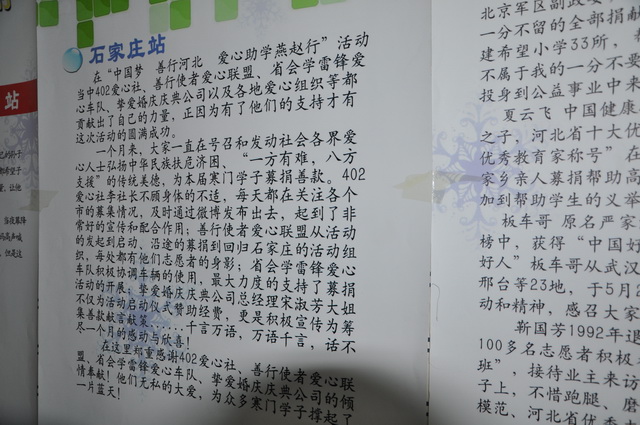 石家庄站
在“中国梦 善行河北 爱心助学燕赵行”活动
当中402爱心社、善行使者爱心联盟、省会学雷锋爱
心车队、挚爱婚庆庆典公司以及各地爱心组织等都
贡献出了自己的力量，正因为有了他们的支持才有
这次活动的圆满成功。
一个月来，大家一直在号召和发动社会各界爱
心人士弘扬中华民族扶危济困、“一方有难，八方
支援”的传统美德，为本届寒门学子募捐善款。402
爱心社李社长不顾身体的不适，每天都在关注各个
市的募集情况，及时通过微博发布出去，起到了非
常好的宣传和配合作用；善行使者爱心联盟从活动
的发起到启动、沿途的募捐到回归石家庄的活动组
织，每处都有他们志愿者的身影；省会学雷锋爱心
车队积极协调车辆的使用，最大力度的支持了募捐
活动的开展；挚爱婚庆庆典公司总经理宋淑芳大姐
不仅为活动启动仪式赞助经费，更是积极宣传为筹
集善款献言献策......千言万语，万语千言，话不
尽一个月的感动与欣喜！
在这里郑重感谢402爱心社、善行使者爱心联
盟、省会学雷锋爱心车队、挚爱婚庆庆典公司的倾
情奉献！他们无私的大爱，为众多寒门学子撑起了
一片蓝天！
站
北京军区副政委
一分不留的全部捐献
建希望小学33所，
不属于我的一分不要
投身到公益事业中来
夏云飞 中国健康
之子，河北省十大优
优秀教育家称号”在
家乡亲人募捐帮助高
加到帮助学生的义举
板车哥 原名严家
榜中，获得“中国好
好人”板车哥从武汉
邢台等23地，于5月2
动和精神，感召大家
靳国芳1992年退
100多名志愿者积极
班”，接待业主来访
子上，不惜跑腿、磨
模范、河北省优秀